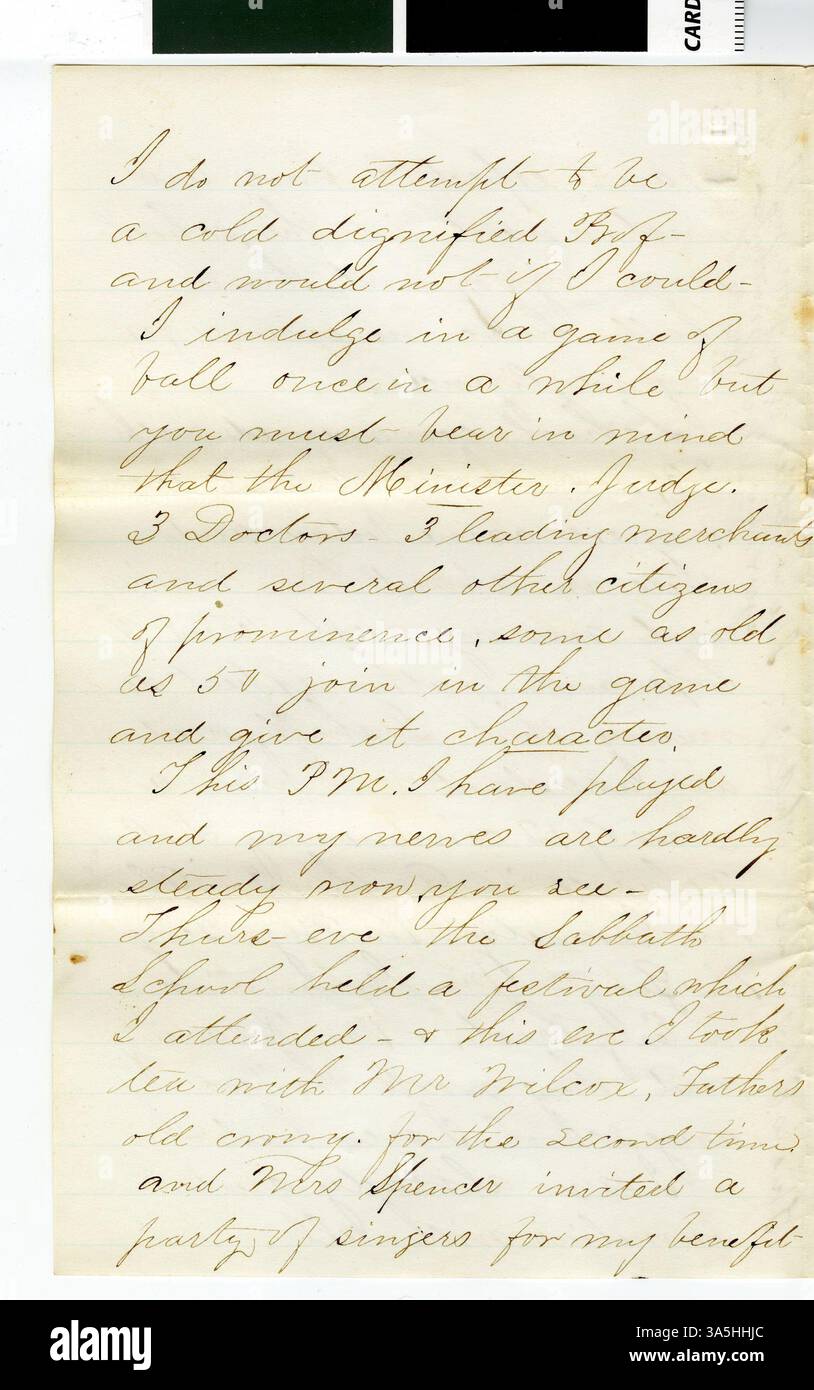 CARD
alamy
I do not attempt to be
a cold dignified Prof-
and would not if I could-
I indulge in a game of
ball once in a while but
you must bear in mind
that the Minister. Judge.
3 Doctors - 3 leading merchants
and several other citizens
of prominence, some as old
as 50 join in the game
and give it character.
This P.M. I have played
and my nerves are hardly
steady now, you see-
Thurs-eve the Sabbath
School held a festival which
I attended - & this eve I took
tea with Mr Wilcox, Fathers
old crony. for the second time.
and Mrs Spencer invited a
party of singers for my benefit-
alamy
Image ID: 3A5HHJC
www.alamy.com